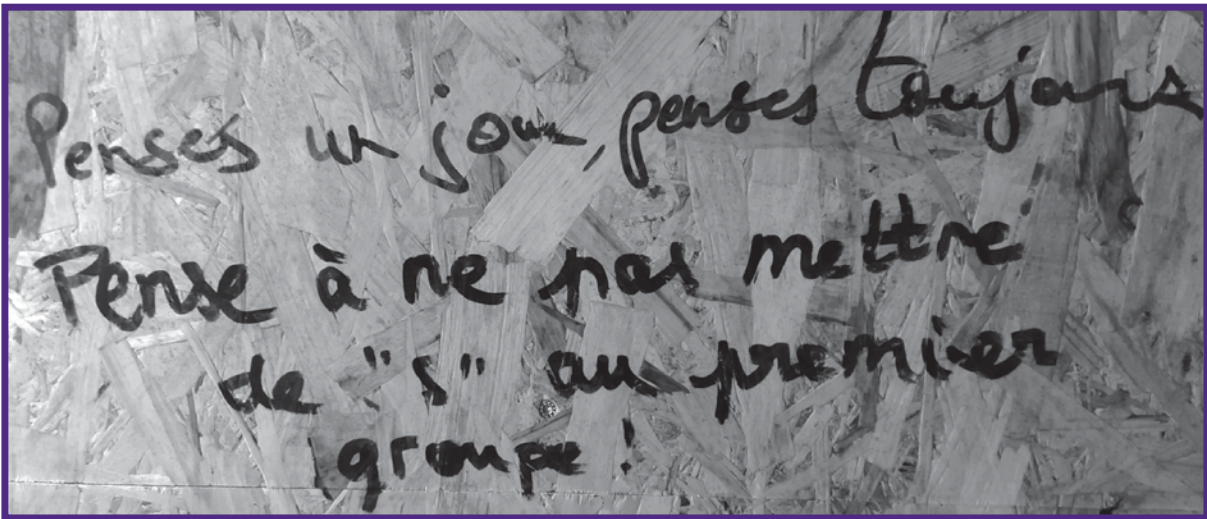 Penses un jour, penses toujours
Pense à ne pas mettre
de "s" au premier
groupe !